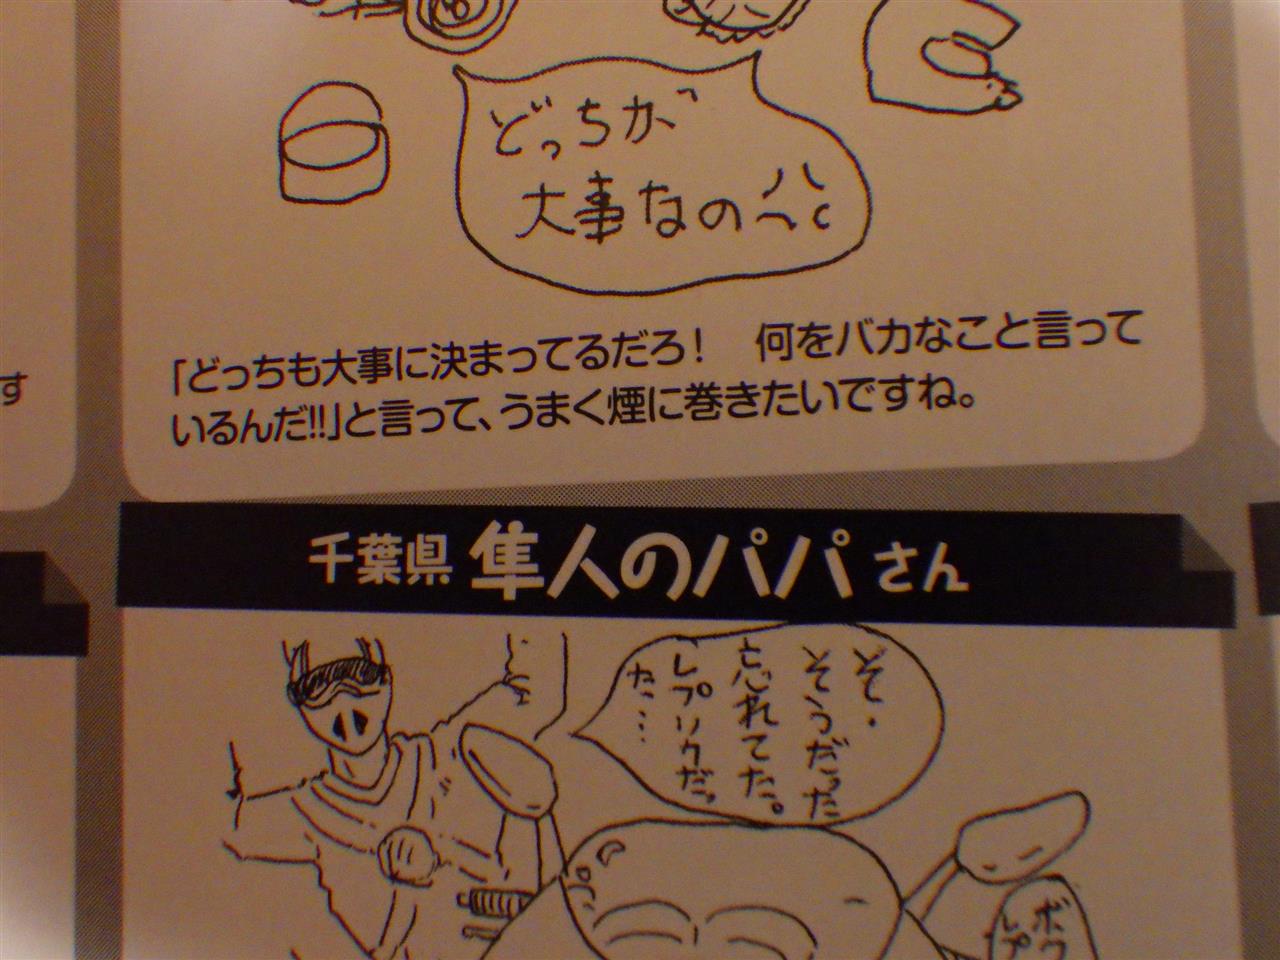 どっちが
大事なの
「どっちも大事に決まってるだろ！　何をバカなこと言って
いるんだ!!」と言って、うまく煙に巻きたいですね。
す
千葉県 隼人のパパさん
そ・
そうだった
忘れてた。
レプリカだっ
た…
ボク
レプ